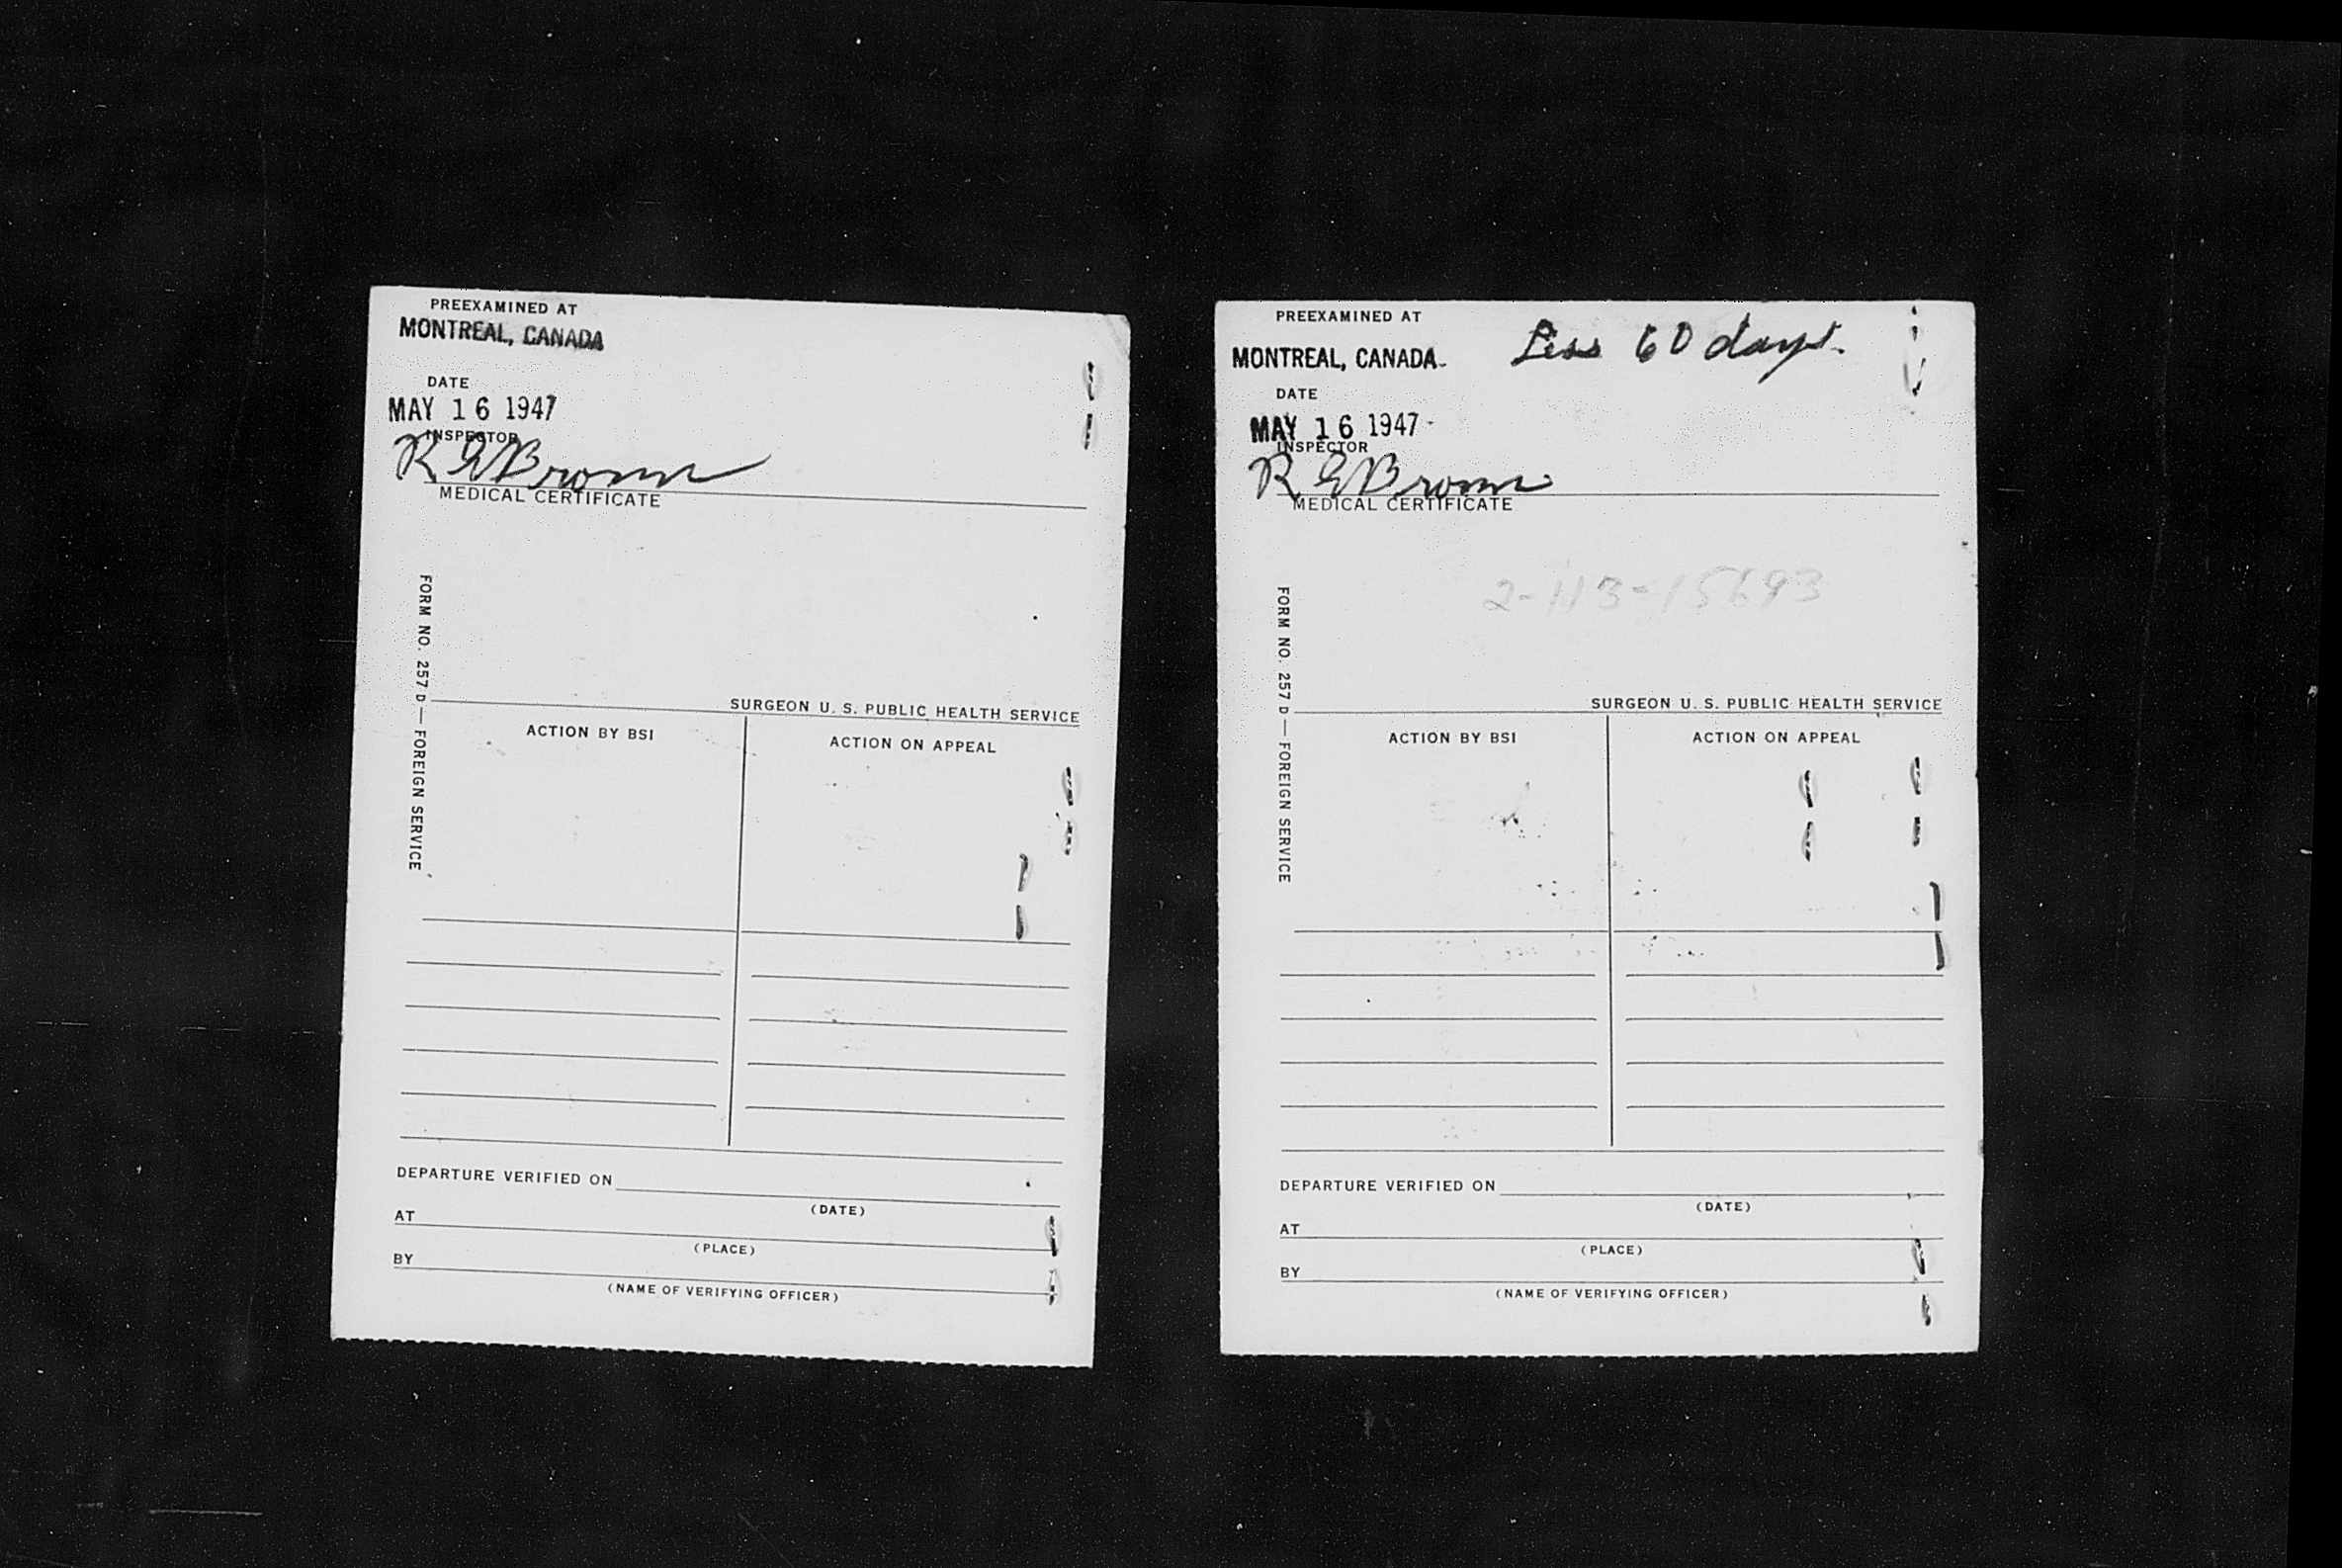 PREEXAMINED AT
MONTREAL, CANADA
DATE
MAY 16 1947
INSPECTOR
R E Brown
MEDICAL CERTIFICATE
FORM NO. 257 D — FOREIGN SERVICE
SURGEON U. S. PUBLIC HEALTH SERVICE
ACTION BY BSI
ACTION ON APPEAL
DEPARTURE VERIFIED ON
(DATE)
AT
(PLACE)
BY
(NAME OF VERIFYING OFFICER)
PREEXAMINED AT
MONTREAL, CANADA
Less 60 days.
DATE
MAY 16 1947
INSPECTOR
R E Brown
MEDICAL CERTIFICATE
2-113-15693
FORM NO. 257 D — FOREIGN SERVICE
SURGEON U. S. PUBLIC HEALTH SERVICE
ACTION BY BSI
ACTION ON APPEAL
DEPARTURE VERIFIED ON
(DATE)
AT
(PLACE)
BY
(NAME OF VERIFYING OFFICER)